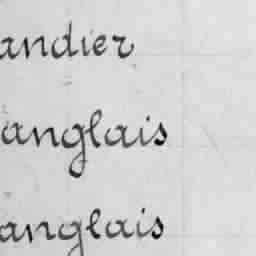 andier
anglais
anglais